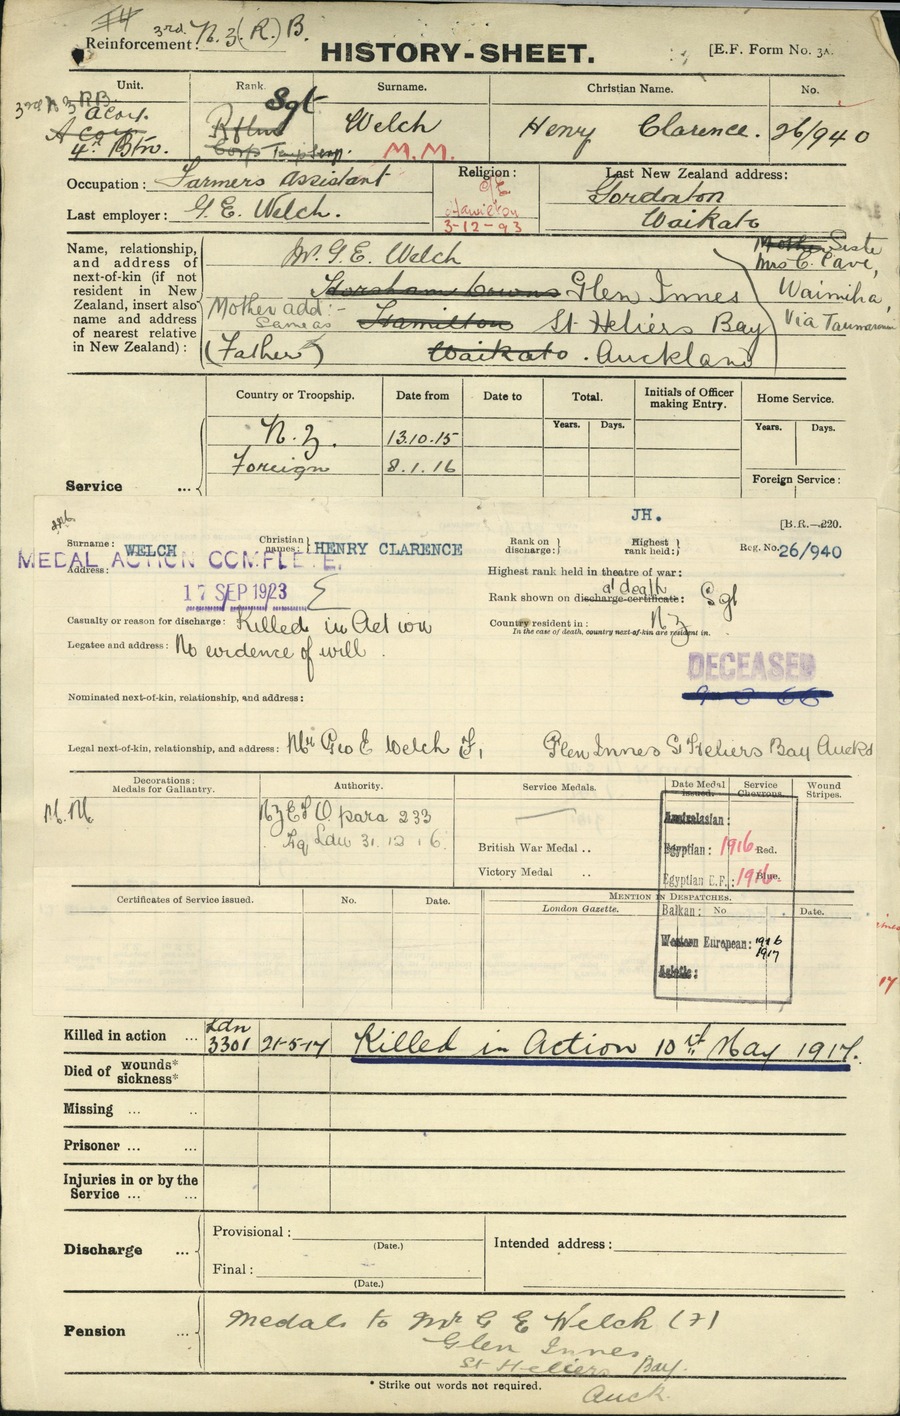 3rd N.Z.(R.)B.
Reinforcement:
HISTORY-SHEET.
[E.F. Form No. 3A.
Unit. Rank. Surname. Christian Name. No.
3rd N Z RB. Sgt
A Coy. Rflmn Welch Henry Clarence. 26/940
A Coy
4th Btn. Corp Temp Serg. M.M.
Occupation: Farmers assistant Religion: Last New Zealand address:
C/E Gordonton
Last employer: G.E. Welch. Hamilton Waikato
3-12-93
Name, relationship, and address of next-of-kin (if not resident in New Zealand, insert also name and address of nearest relative in New Zealand):
Mr. G.E. Welch
Horsham Downs Glen Innes
Mother add:- Same as Hamilton St Heliers Bay
(Father) Waikato. Auckland
Mother Sister
Mrs C. Cave,
Waimiha,
Via Taumarunui
Country or Troopship. Date from Date to Total. Initials of Officer making Entry. Home Service.
Years. Days. Years. Days.
N.Z. 13.10.15
Foreign 8.1.16
Foreign Service:
Service ...
JH.
[B.R.—220.
Surname: WELCH Christian names: HENRY CLARENCE Rank on discharge: Highest rank held: Reg. No. 26/940
MEDAL ACTION COMPLETE.
Address:
17 SEP 1923
Highest rank held in theatre of war:
at death
Rank shown on discharge certificate: Sgt
Casualty or reason for discharge: Killed in Action
Country resident in: NZ
In the case of death, country next-of-kin are resident in.
Legatee and address: No evidence of will.
DECEASED
Nominated next-of-kin, relationship, and address:
Legal next-of-kin, relationship, and address: Mr Geo E Welch F, Glen Innes St Heliers Bay Auckd
Decorations: Medals for Gallantry. Authority. Service Medals. Date Medal issued. Service Chevrons. Wound Stripes.
M.M. NZEFO para 233
31.12.16.
Australasian:
British War Medal .. Egyptian: 1916 Red.
Victory Medal .. Egyptian E.F.: 1916 Blue.
Certificates of Service issued. No. Date. MENTION IN DESPATCHES.
London Gazette. Balkan: No Date.
Western European: 1916
1917
Asiatic:
Killed in action ... Ldn 3301 21-5-17 Killed in Action 10th May 1917.
Died of wounds* sickness*
Missing ... ..
Prisoner ... ...
Injuries in or by the Service ... ...
Discharge ...
Provisional:
(Date.)
Final:
(Date.)
Intended address:
Pension ...
Medals to Mr G E Welch (F)
Glen Innes
St Heliers Bay.
Auck.
* Strike out words not required.